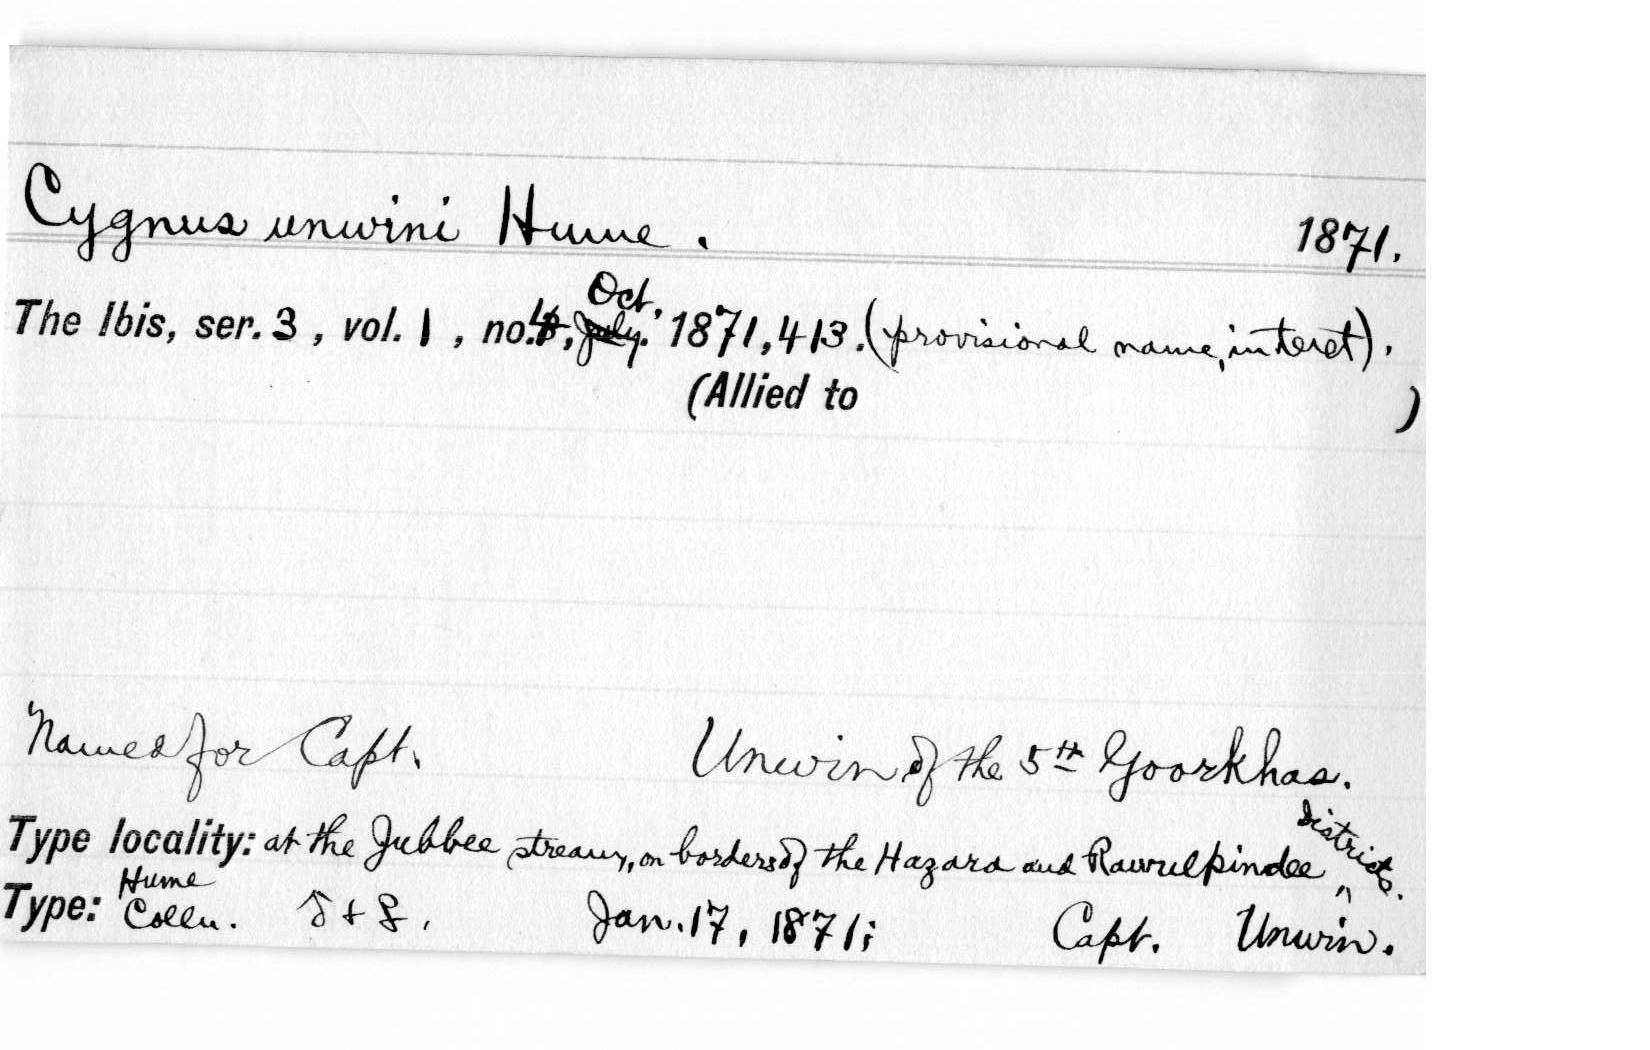 Cygnus unwini Hume. 1871.
Oct.
The Ibis, ser. 3, vol. 1, no. 4, July. 1871, 413. (provisional name, in text).
(Allied to )
Named for Capt. Unwin of the 5th Goorkhas.
districts.
Type locality: at the Jubbee stream, on borders of the Hazara and Rawulpindee ^
Hume
Type: Colln. ♂ + ♀. Jan. 17, 1871; Capt. Unwin.